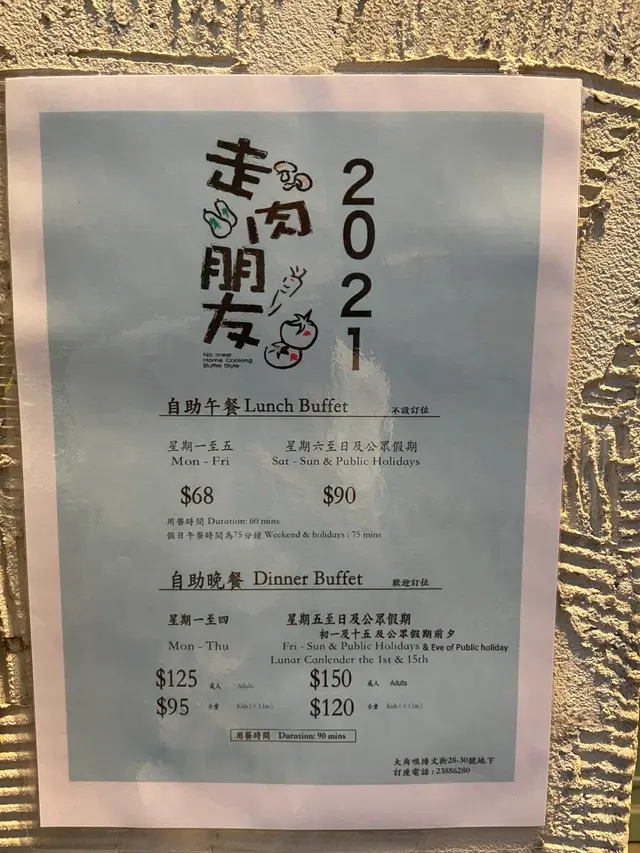 走肉朋友
2021
No meat
Home Cooking
Buffet Style
自助午餐 Lunch Buffet 不設訂位
星期一至五 星期六至日及公眾假期
Mon - Fri Sat - Sun & Public Holidays
$68 $90
用餐時間 Duration: 60 mins
假日午餐時間為75分鐘 Weekend & holidays : 75 mins
自助晚餐 Dinner Buffet 歡迎訂位
星期一至四 星期五至日及公眾假期
初一及十五及公眾假期前夕
Mon - Thu Fri - Sun & Public Holidays & Eve of Public holiday
Lunar Canlender the 1st & 15th
$125 成人 Adults $150 成人 Adults
$95 小童 Kids ( < 1.1m ) $120 小童 Kids ( < 1.1m )
用餐時間 Duration: 90 mins
大角咀博文街28-30號地下
訂座電話 : 23886280